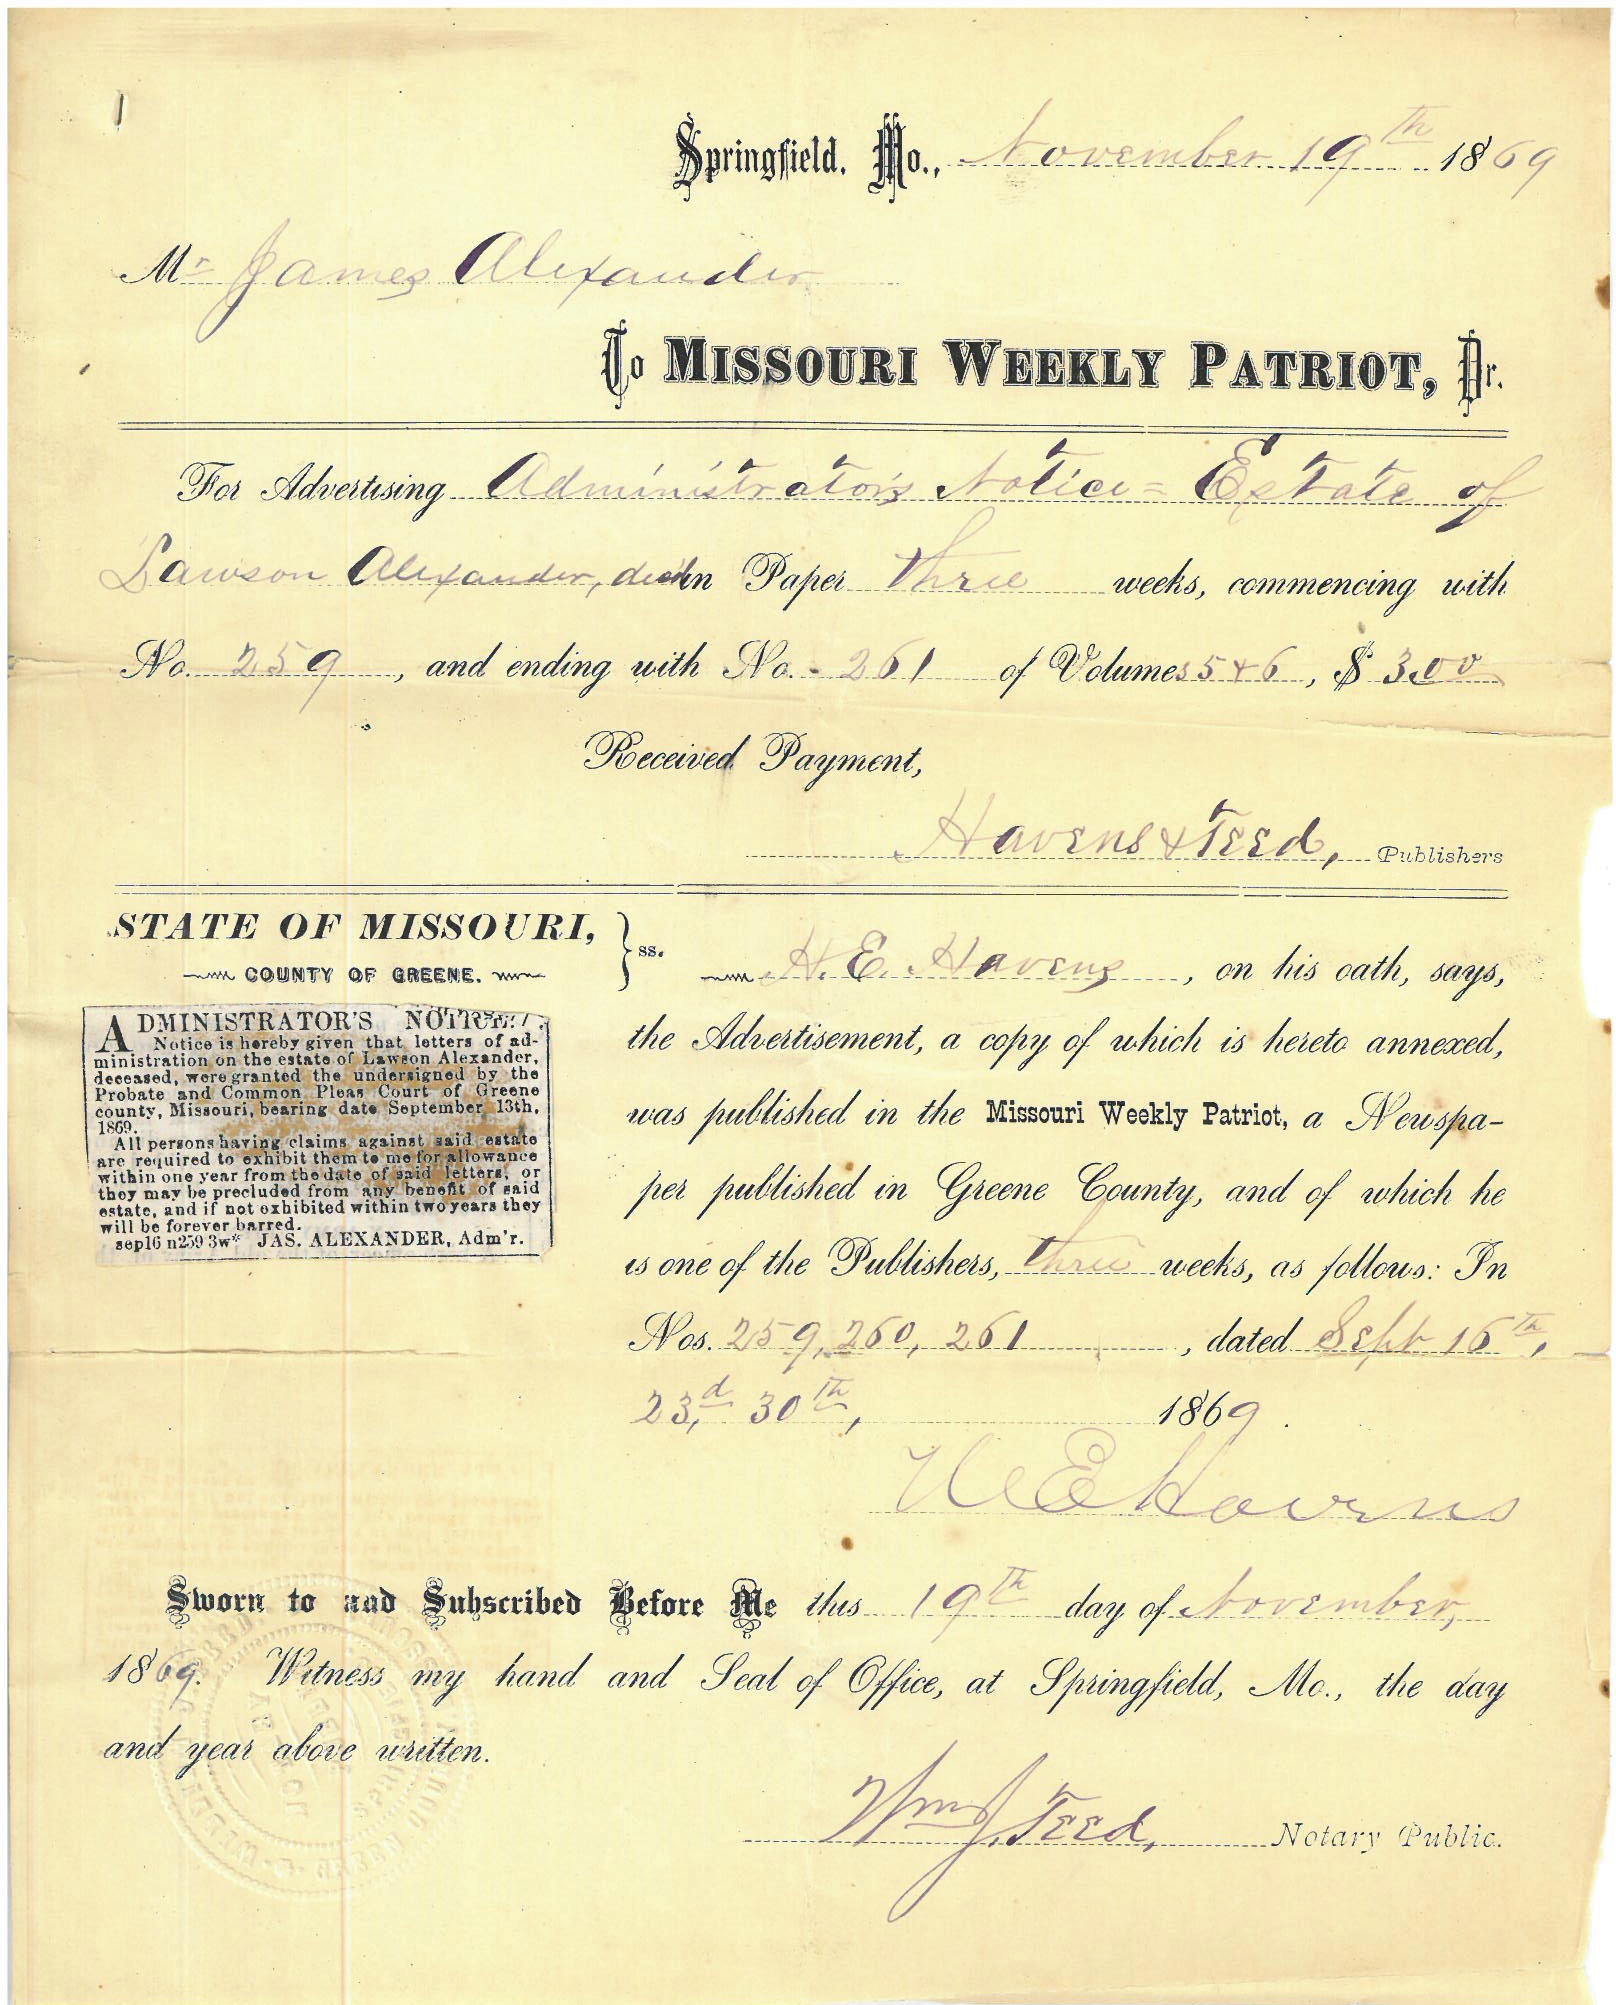 Springfield, Mo., November 19th 1869
Mr James Alexander
To MISSOURI WEEKLY PATRIOT, Dr.
For Advertising Administrator's Notice = Estate of
Lawson Alexander, dec'd in Paper three weeks, commencing with
No. 259, and ending with No. 261 of Volumes 5 & 6, $ 3.00
Received Payment,
Havens & Teed, Publishers
STATE OF MISSOURI,
COUNTY OF GREENE. } ss.
ADMINISTRATOR'S NOTICE.
Notice is hereby given that letters of ad-
ministration on the estate of Lawson Alexander,
deceased, were granted the undersigned by the
Probate and Common Pleas Court of Greene
county, Missouri, bearing date September 13th,
1869.
All persons having claims against said estate
are required to exhibit them to me for allowance
within one year from the date of said letters, or
they may be precluded from any benefit of said
estate, and if not exhibited within two years they
will be forever barred.
sep16 n259 3w* JAS. ALEXANDER, Adm'r.
H. E. Havens, on his oath, says,
the Advertisement, a copy of which is hereto annexed,
was published in the Missouri Weekly Patriot, a Newspa-
per published in Greene County, and of which he
is one of the Publishers, three weeks, as follows: In
Nos. 259, 260, 261, dated Sept 16th,
23,d 30th, 1869.
H E Havens
Sworn to and Subscribed Before Me this 19th day of November,
1869. Witness my hand and Seal of Office, at Springfield, Mo., the day
and year above written.
Wm J. Teed, Notary Public.